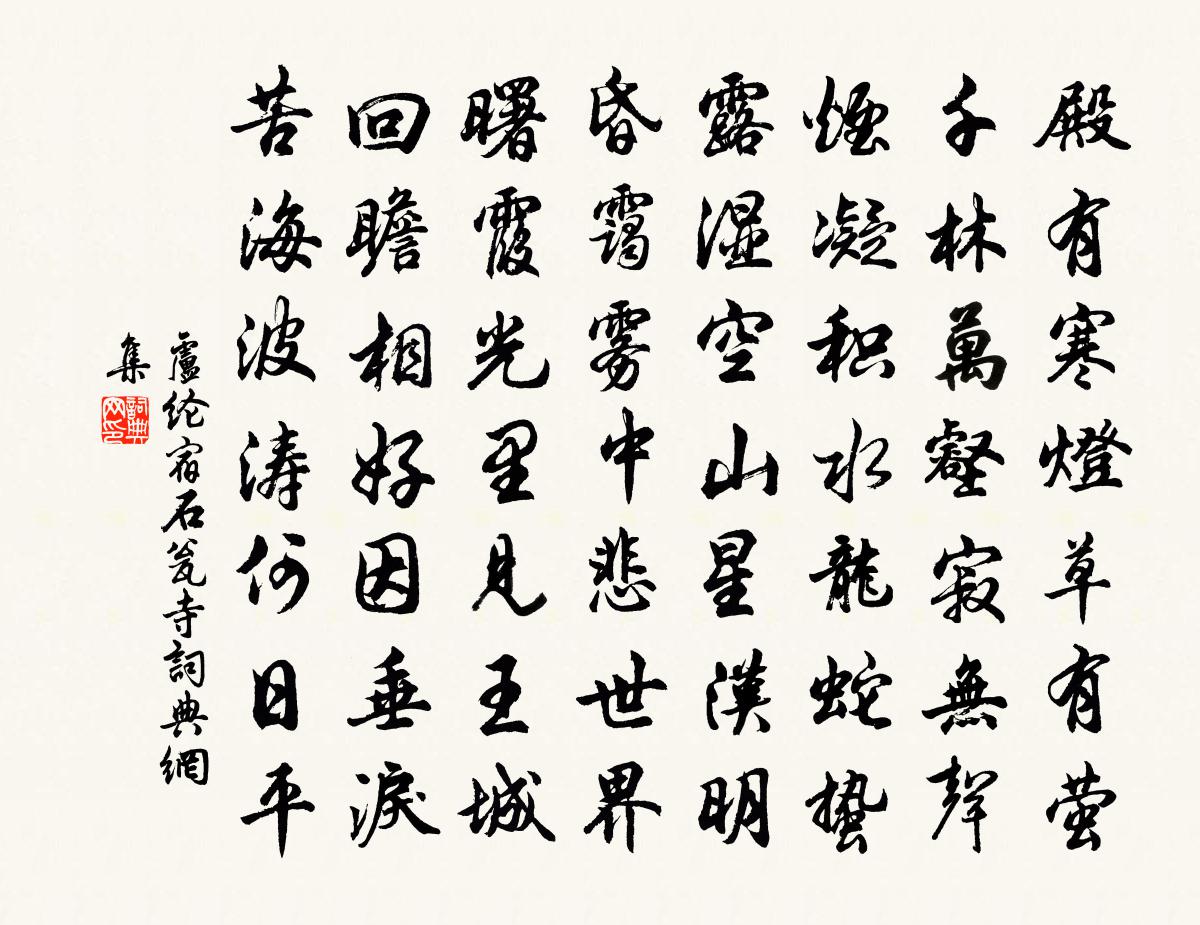 殿有寒燈草有萤
千林萬壑寂無聲
煙凝积水龍蛇蟄
露湿空山星漢明
昏霭雾中悲世界
曙霞光里見王城
回瞻相好因垂淚
苦海波涛何日平
盧纶宿石瓮寺詞典網
集
詞典
网印